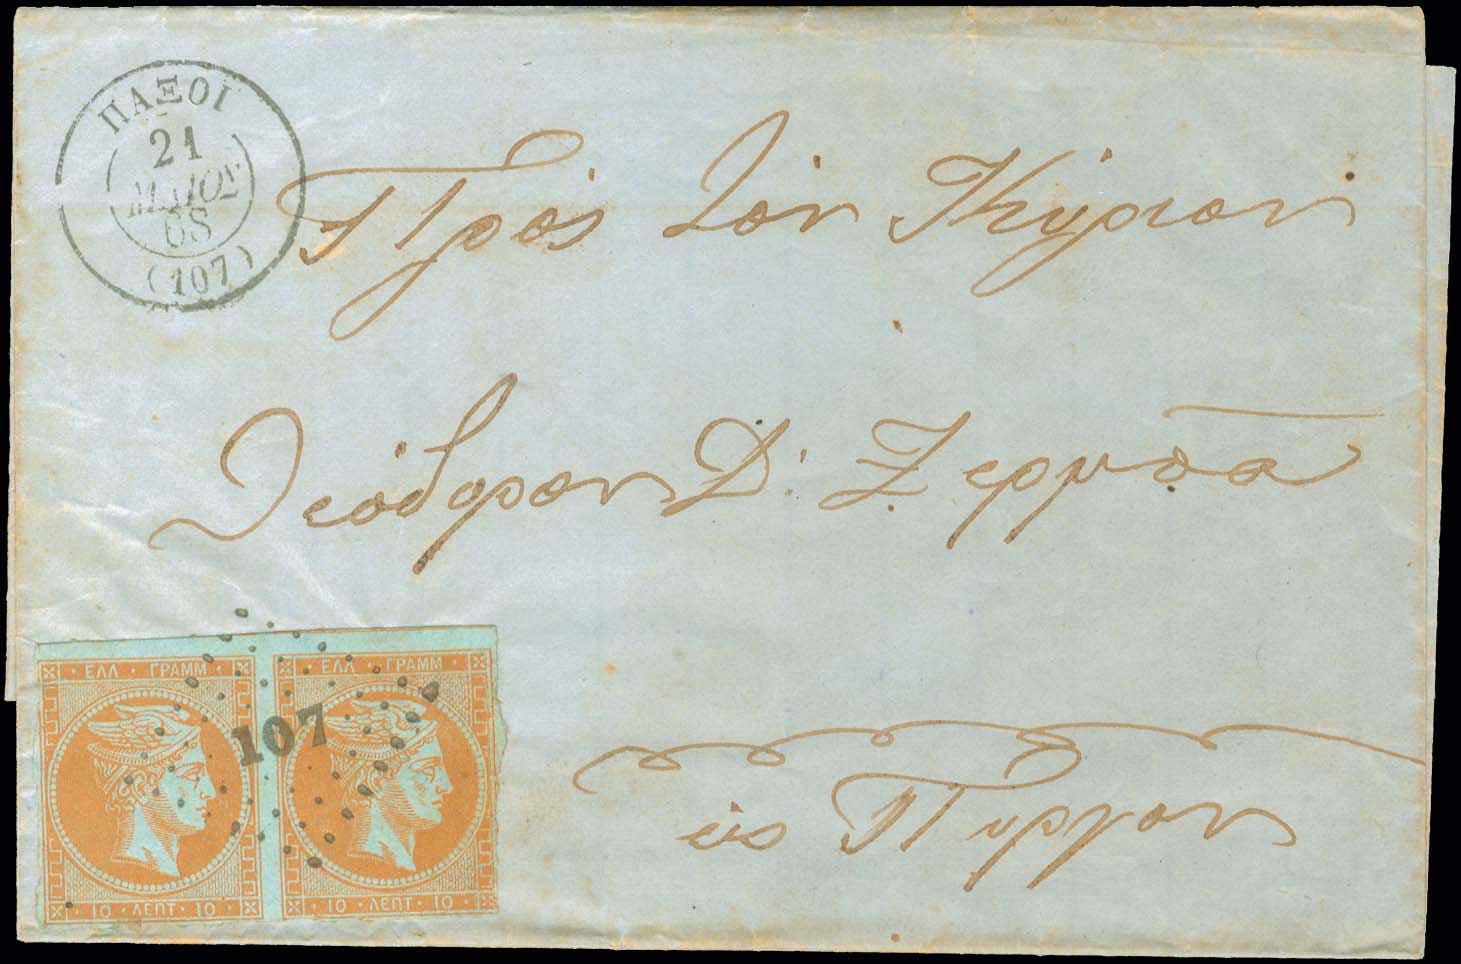 ΠΑΞΟΙ
21
ΜΑΙΟΣ
68
(107)
Πρὸς τὸν Κύριον
Θεόδωρον Δ: Ζερμπᾶ
εἰς Πύργον
107
ΕΛΛ · ΓΡΑΜΜ
10 · ΛΕΠΤ · 10
ΕΛΛ · ΓΡΑΜΜ
10 · ΛΕΠΤ · 10